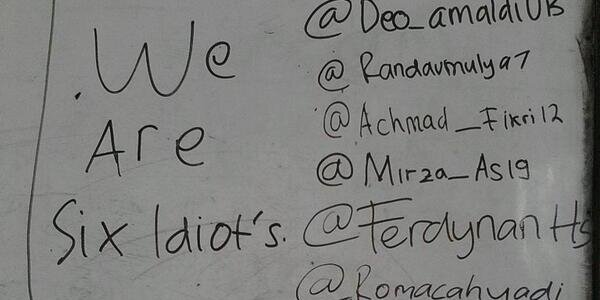 .We
Are
Six Idiot's.
@Deo_amaldi
@Randaumulya7
@Achmad_Fikri12
@Mirza_As19
@FerdynanHs
@Romacahyadi